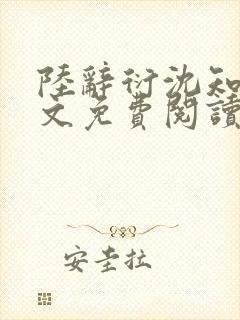 陸辭衍沈知
文免費閱讀
安圭拉